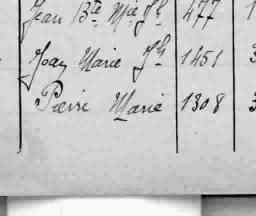 Jean Bte Mie Jh 477 1
Jean Marie Jh 1451 3
Pierre Marie 1308 3